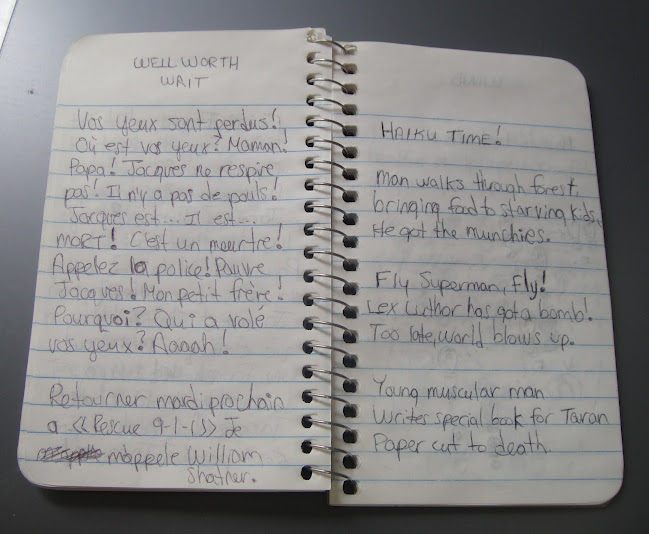 WELL WORTH
WAIT
Vos yeux sont perdus!
Où est vos yeux? Maman!
Papa! Jacques ne respire
pas! Il n'y a pas de pouls!
Jacques est... Il est...
MORT! C'est un meurtre!
Appelez la police! Pauvre
Jacques! Mon petit frère!
Pourquoi? Qui a volé
vos yeux? Aaaah!
Retourner mardi prochain
a <<Rescue 9-1-1>> Je
m'appele William
Shatner.
HAIKU TIME!
Man walks through forest,
bringing food to starving kids.
He got the munchies.
Fly Superman, fly!
Lex Luthor has got a bomb!
Too late, world blows up.
Young muscular man
Writes special book for Taran
Paper cut to death.